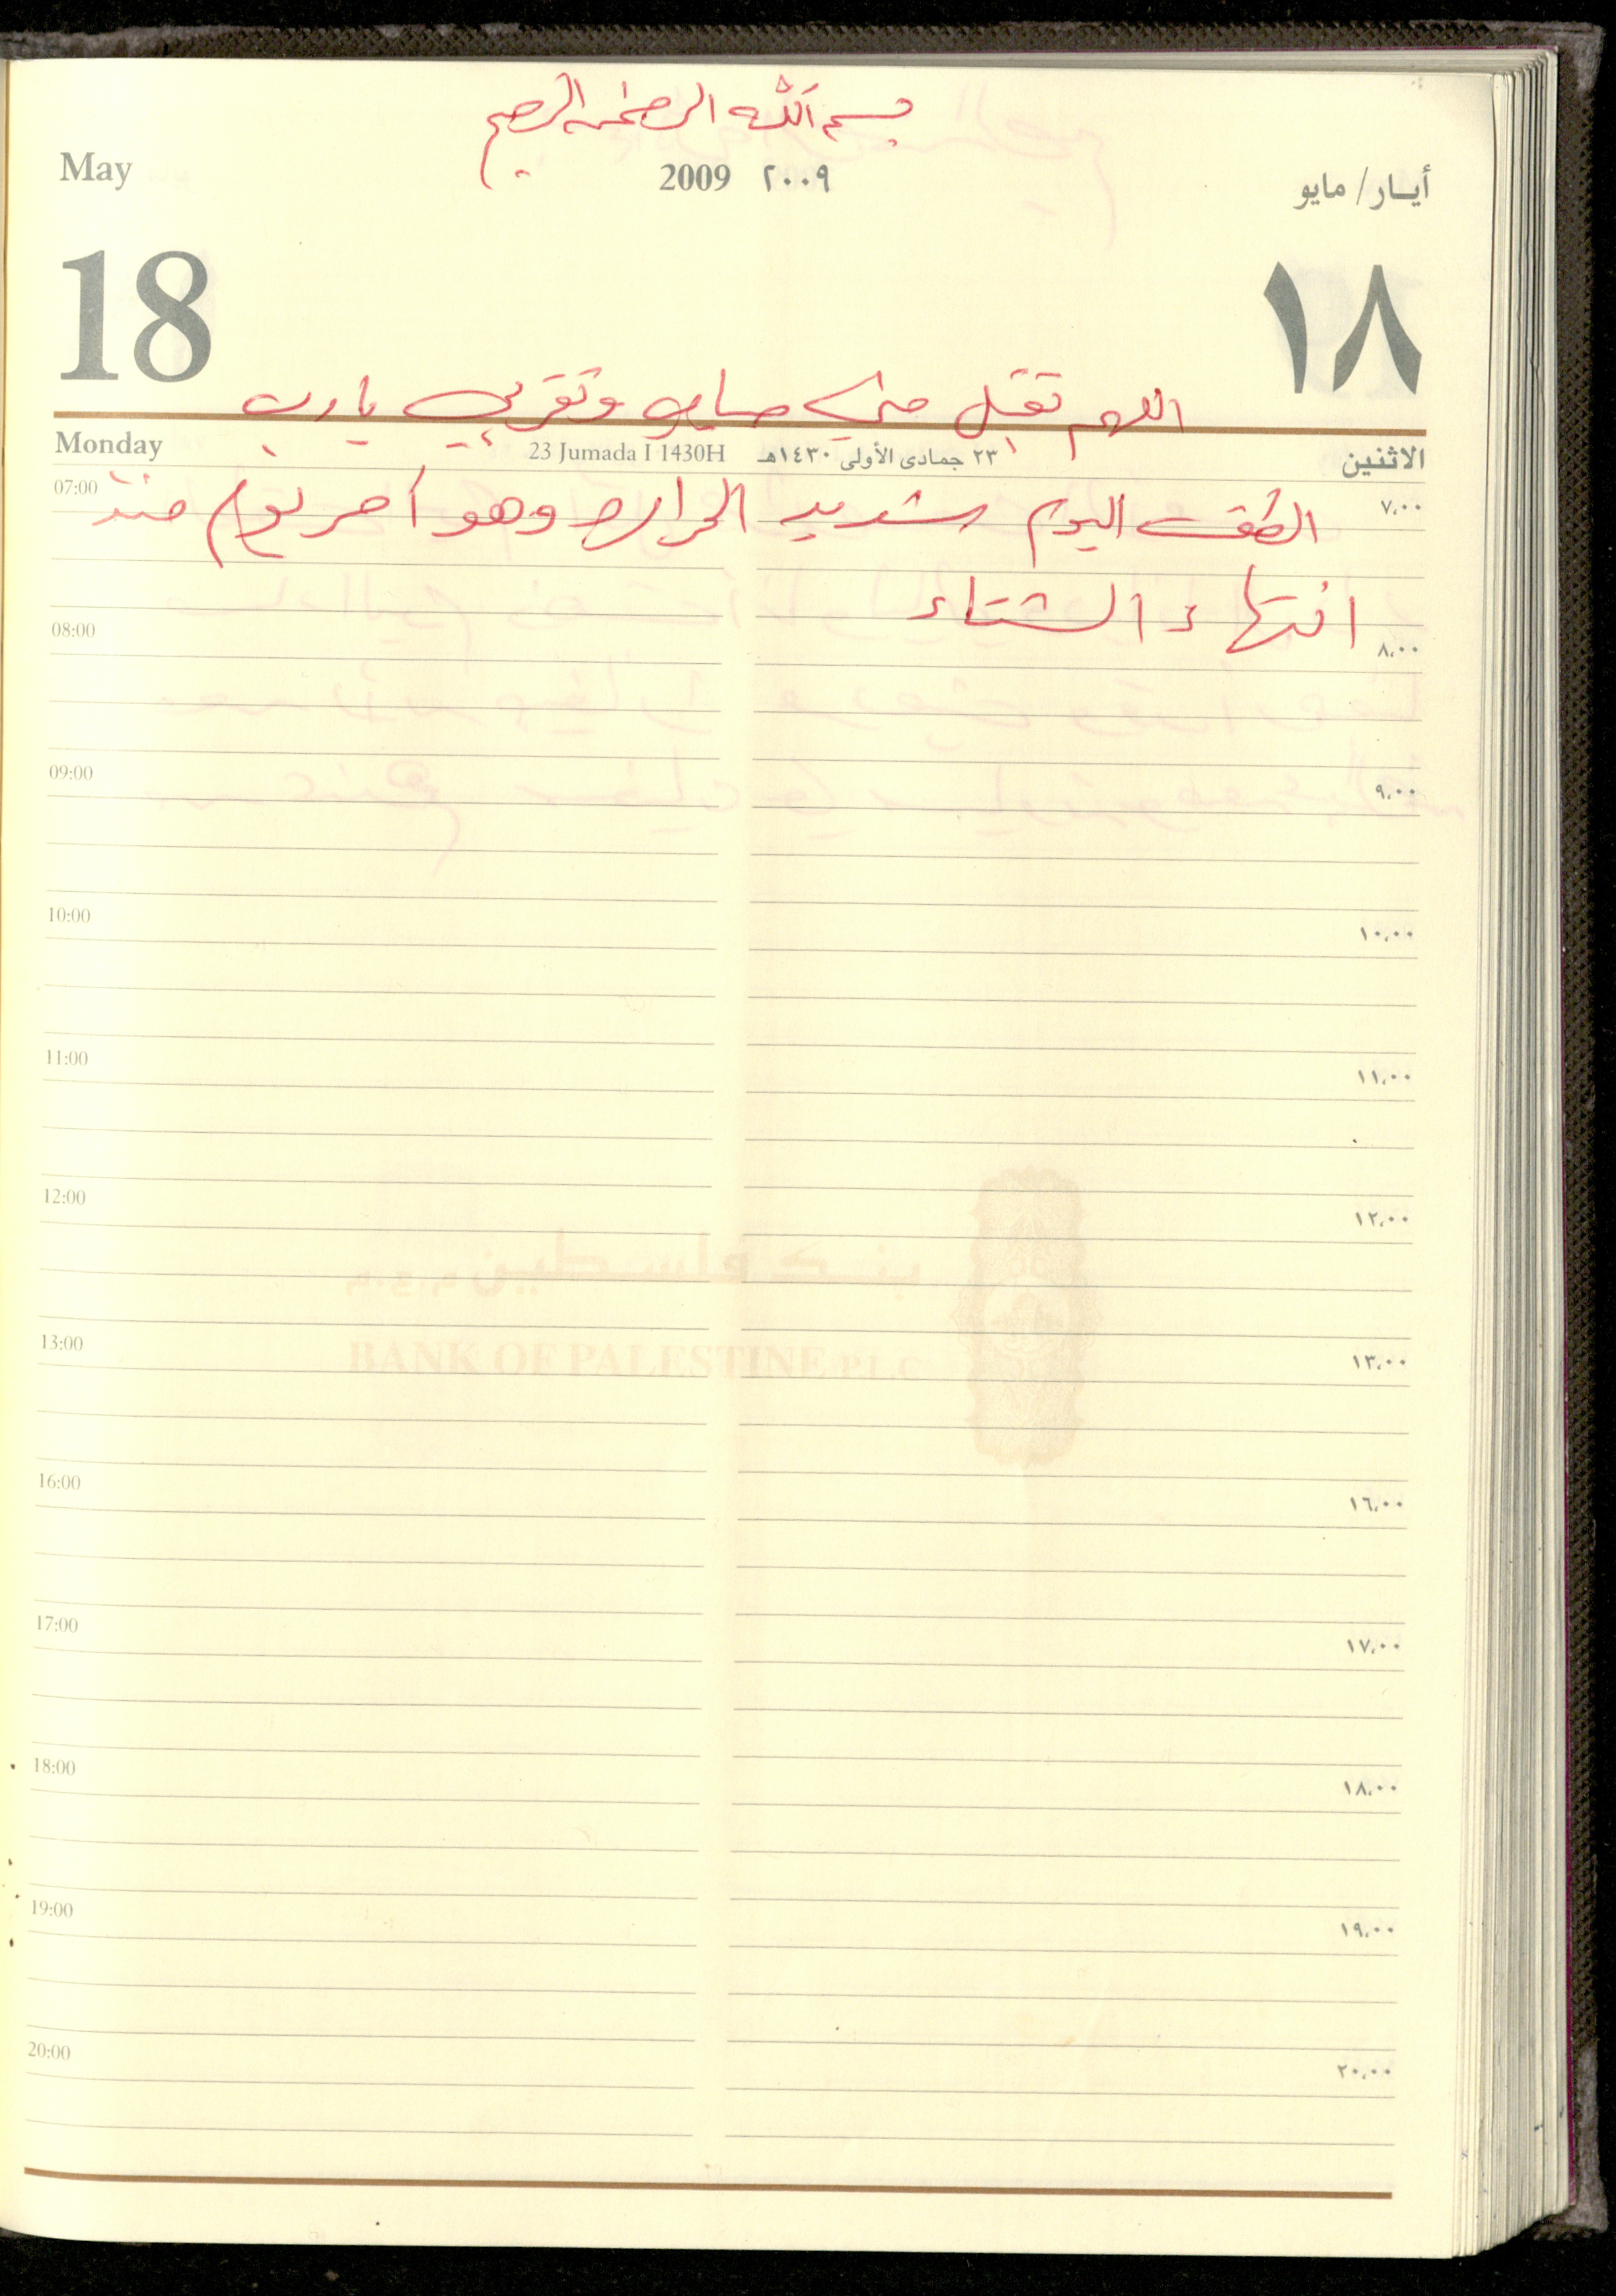 بسم الله الرحمن الرحيم
May 2009 ٢٠٠٩ أيـار/ مايو
18 ١٨
اللهم تقبل مني صيامي وتقربي يارب
Monday 23 Jumada I 1430H ٢٣ جمادى الأولى ١٤٣٠هـ الاثنين
الطقس اليوم شديد الحرارة وهو أحر يوم منذ
انتهاء الشتاء
07:00 ٧،٠٠
08:00 ٨،٠٠
09:00 ٩،٠٠
10:00 ١٠،٠٠
11:00 ١١،٠٠
12:00 ١٢،٠٠
بنك فلسطين م.ع.م
BANK OF PALESTINE P.L.C
13:00 ١٣،٠٠
16:00 ١٦،٠٠
17:00 ١٧،٠٠
18:00 ١٨،٠٠
19:00 ١٩،٠٠
20:00 ٢٠،٠٠